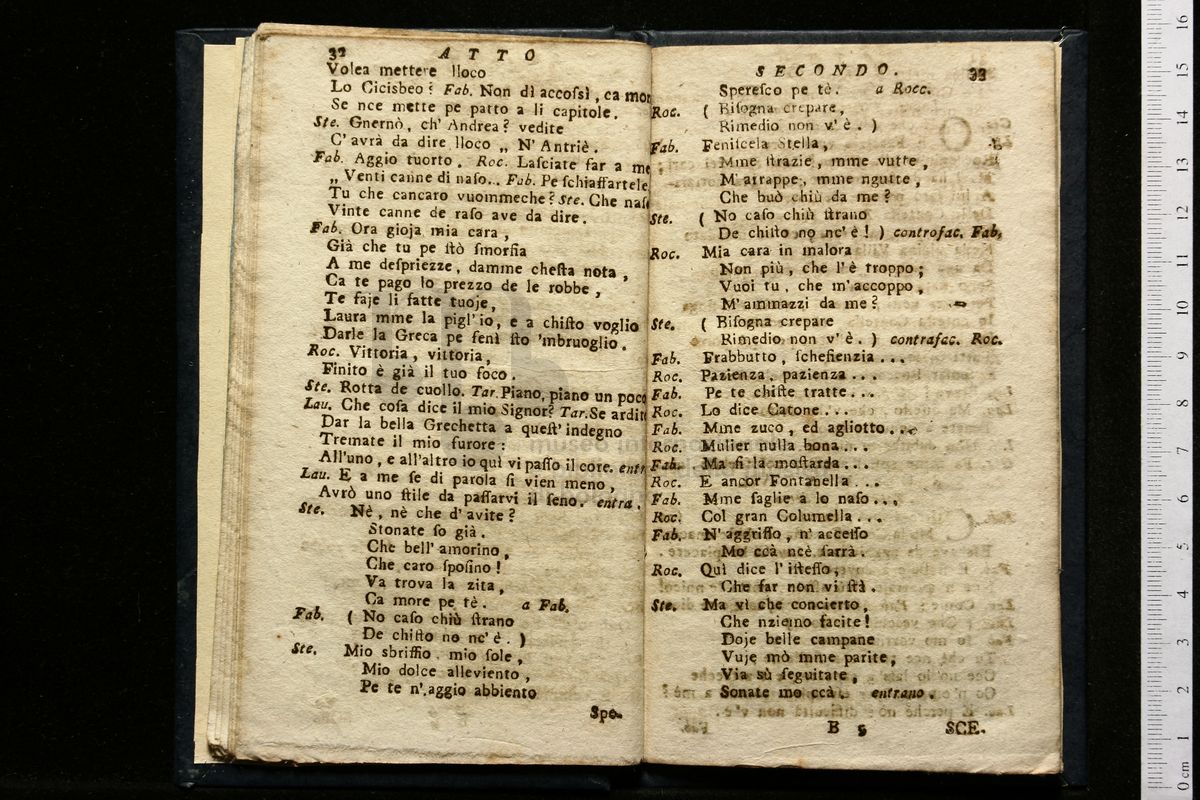 32 ATTO
Volea mettere lloco
Lo Cicisbeo? Fab. Non dì accoſsì, ca mor
Se nce mette pe patto a li capitole.
Ste. Gnernò, ch' Andrea? vedite
C'avrà da dire lloco „ N'Antriè.
Fab. Aggio tuorto. Roc. Laſciate far a me
„ Venti canne di naſo.. Fab. Pe ſchiaffartele
Tu che cancaro vuommeche? Ste. Che naſo
Vinte canne de raſo ave da dire.
Fab. Ora gioja mia cara,
Già che tu pe ſtò ſmorfia
A me deſpriezze, damme cheſta nota,
Ca te pago lo prezzo de le robbe,
Te faje li fatte tuoje,
Laura mme la pigl'io, e a chiſto voglio
Darle la Greca pe fenì ſto 'mbruoglio.
Roc. Vittoria, vittoria,
Finito è già il tuo foco.
Ste. Rotta de cuollo. Tar. Piano, piano un poco
Lau. Che coſa dice il mio Signor? Tar. Se ardite
Dar la bella Grechetta a queſt' indegno
Tremate il mio furore:
All'uno, e all'altro io quì vi paſſo il core. entr
Lau. E a me ſe di parola ſi vien meno,
Avrò uno ſtile da paſſarvi il ſeno. entra.
Ste. Nè, nè che d'avite?
Stonate ſo già.
Che bell' amorino,
Che caro ſpoſino!
Va trova la zita,
Ca more pe tè. a Fab.
Fab. ( No caſo chiù ſtrano
De chiſto no nc'è. )
Ste. Mio sbriffio, mio ſole,
Mio dolce alleviento,
Pe te n'aggio abbiento
Spe-
SECONDO. 33
Spereſco pe tè. a Rocc.
Roc. ( Biſogna crepare,
Rimedio non v'è. )
Fab. Feniſcela Stella,
Mme ſtrazie, mme vutte,
M'arrappe, mme ngutte,
Che buò chiù da me?
Ste. ( No caſo chiù ſtrano
De chiſto no nc'è! ) controfac. Fab.
Roc. Mia cara in malora
Non più, che l'è troppo;
Vuoi tu, che m'accoppo,
M'ammazzi da me?
Ste. ( Biſogna crepare
Rimedio non v'è. ) contrafac. Roc.
Fab. Frabbutto, ſcheſienzia...
Roc. Pazienza, pazienza...
Fab. Pe te chiſte tratte...
Roc. Lo dice Catone...
Fab. Mme zuco, ed agliotto...
Roc. Mulier nulla bona...
Fab. Ma ſi la moſtarda...
Roc. E ancor Fontanella...
Fab. Mme ſaglie a lo naſo...
Roc. Col gran Columella...
Fab. N'aggriffo, n'acceiſo
Mo ccà ncè ſarrà.
Roc. Quì dice l'iſteſſo,
Che far non vi ſtà.
Ste. Ma vì che concierto,
Che nziemo facite!
Doje belle campane
Vuje mò mme parite,
Via sù ſeguitate,
Sonate mo ccà. entrano.
B 5 SCE-